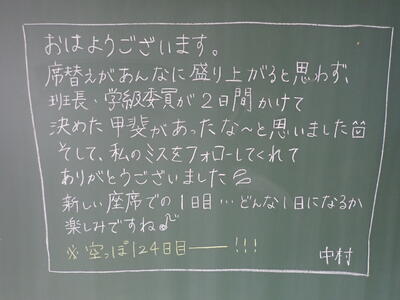 おはようございます。
席替えがあんなに盛り上がると思わず、
班長・学級委員が2日間かけて
決めた甲斐があったな〜と思いました
そして、私のミスをフォローしてくれて
ありがとうございました
新しい座席での1日目…どんな1日になるか
楽しみですね♪
※空っぽ124日目――!!!
中村